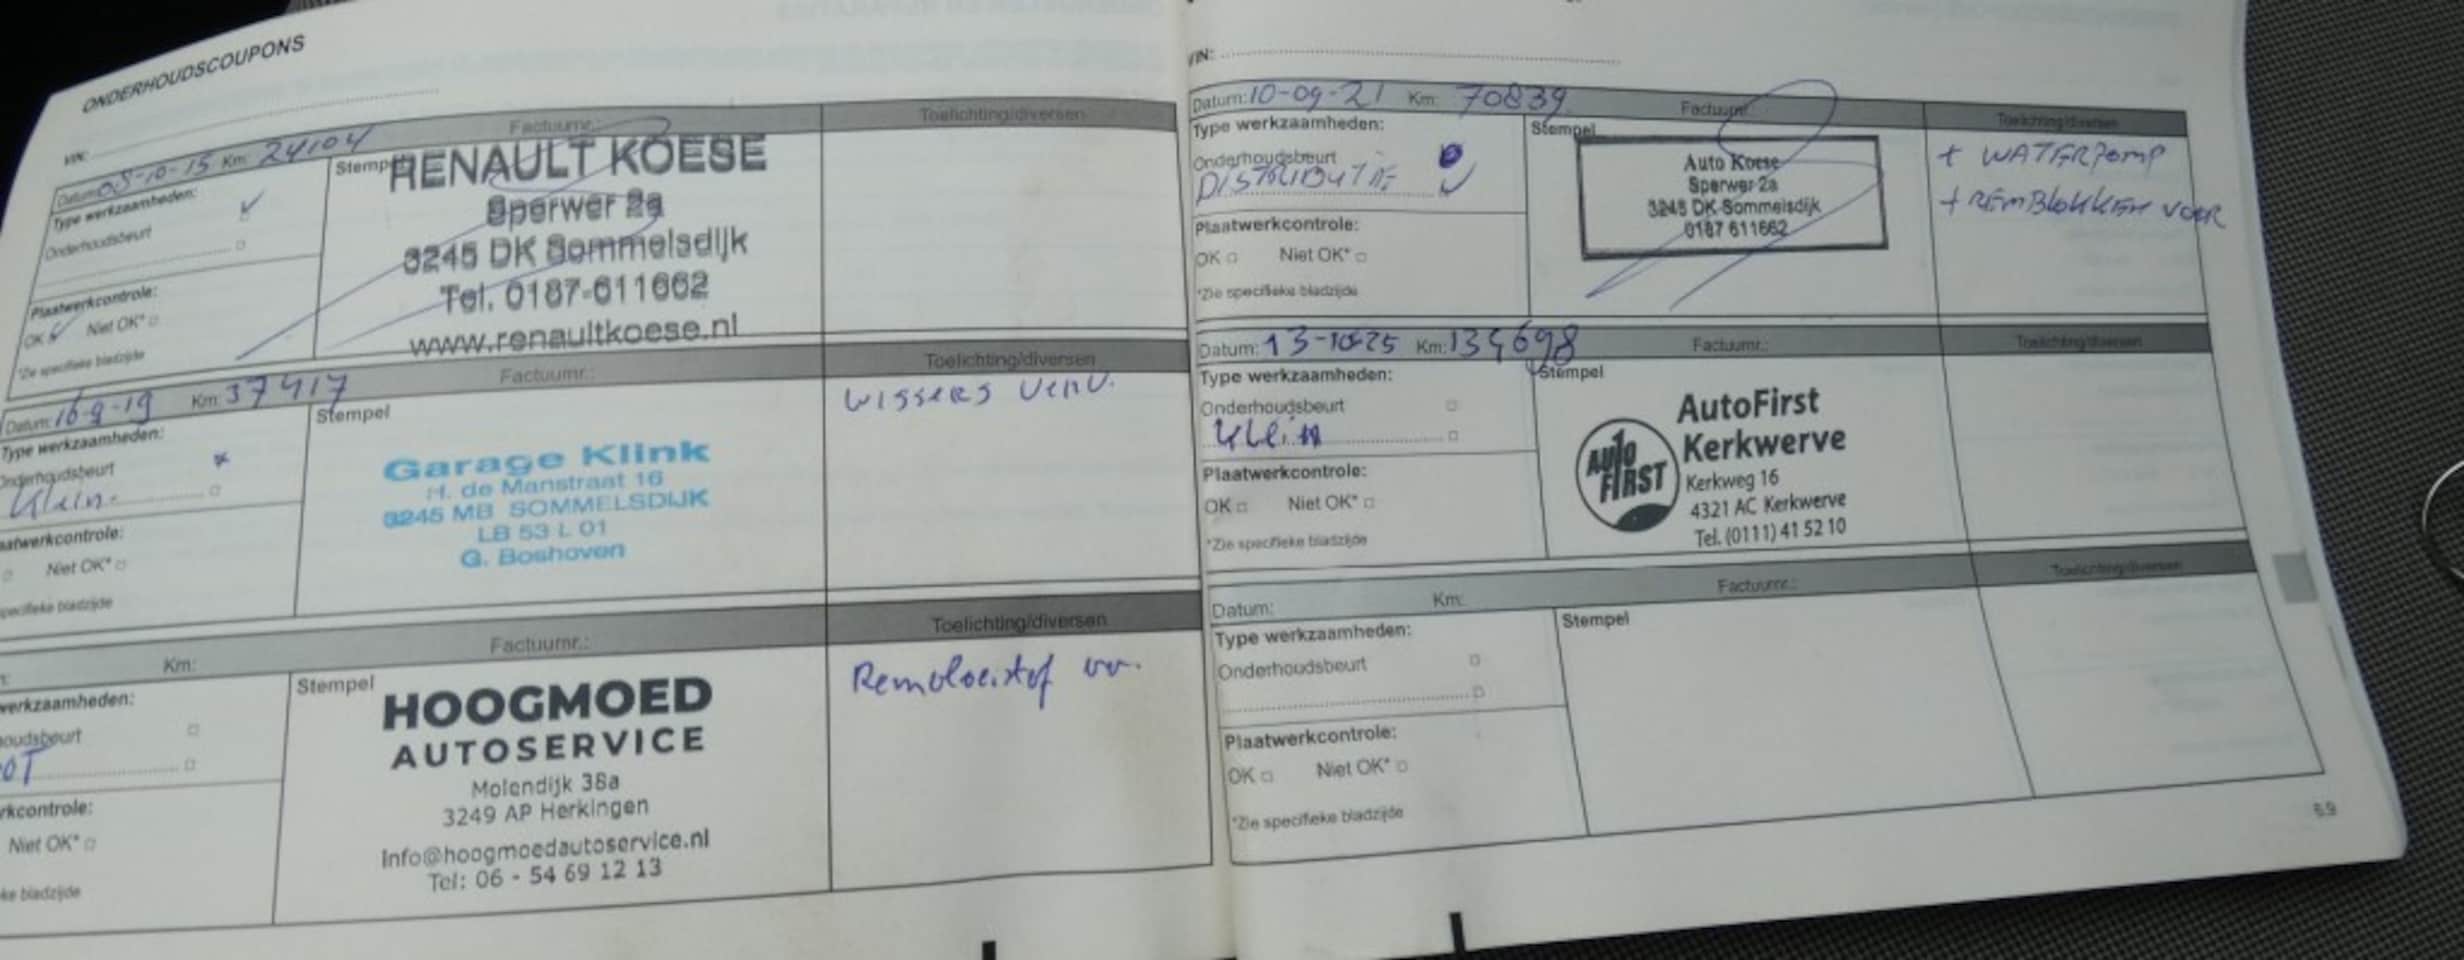 ONDERHOUDSCOUPONS
VIN:
Datum: 05-10-15 Km: 24104 Factuurnr.: Toelichting/diversen
Type werkzaamheden:
Onderhoudsbeurt
Plaatwerkcontrole:
OK Niet OK*
*Zie specifieke bladzijde
Stempel
RENAULT KOESE
Sperwer 2a
3245 DK Sommelsdijk
Tel. 0187-611662
www.renaultkoese.nl
Datum: 16-9-19 Km: 37417 Factuurnr.: Toelichting/diversen
Type werkzaamheden:
Onderhoudsbeurt
Klein
aatwerkcontrole:
Niet OK*
specifieke bladzijde
Stempel
Garage Klink
H. de Manstraat 16
3245 MB SOMMELSDIJK
LB 53 L 01
G. Boshoven
wissers venv.
Km: Factuurnr.: Toelichting/diversen
werkzaamheden:
oudsbeurt
OT
rkcontrole:
Niet OK*
ke bladzijde
Stempel
HOOGMOED
AUTOSERVICE
Molendijk 38a
3249 AP Herkingen
Info@hoogmoedautoservice.nl
Tel: 06 - 54 69 12 13
Remvloeistof vv.
VIN:
Datum: 10-09-21 Km: 70839 Factuurnr.: Toelichting/diversen
Type werkzaamheden:
Onderhoudsbeurt
DISTRIBUTIE
Plaatwerkcontrole:
OK Niet OK*
*Zie specifieke bladzijde
Stempel
Auto Koese
Sperwer 2a
3245 DK Sommelsdijk
0187 611662
+ WATERPOMP
+ REMBLOKKEN VOOR
Datum: 13-10-25 Km: 134698 Factuurnr.: Toelichting/diversen
Type werkzaamheden:
Onderhoudsbeurt
Klein
Plaatwerkcontrole:
OK Niet OK*
*Zie specifieke bladzijde
Stempel
AUTO FIRST
AutoFirst
Kerkwerve
Kerkweg 16
4321 AC Kerkwerve
Tel. (0111) 41 52 10
Datum: Km: Factuurnr.: Toelichting/diversen
Type werkzaamheden:
Onderhoudsbeurt
Plaatwerkcontrole:
OK Niet OK*
*Zie specifieke bladzijde
Stempel
69